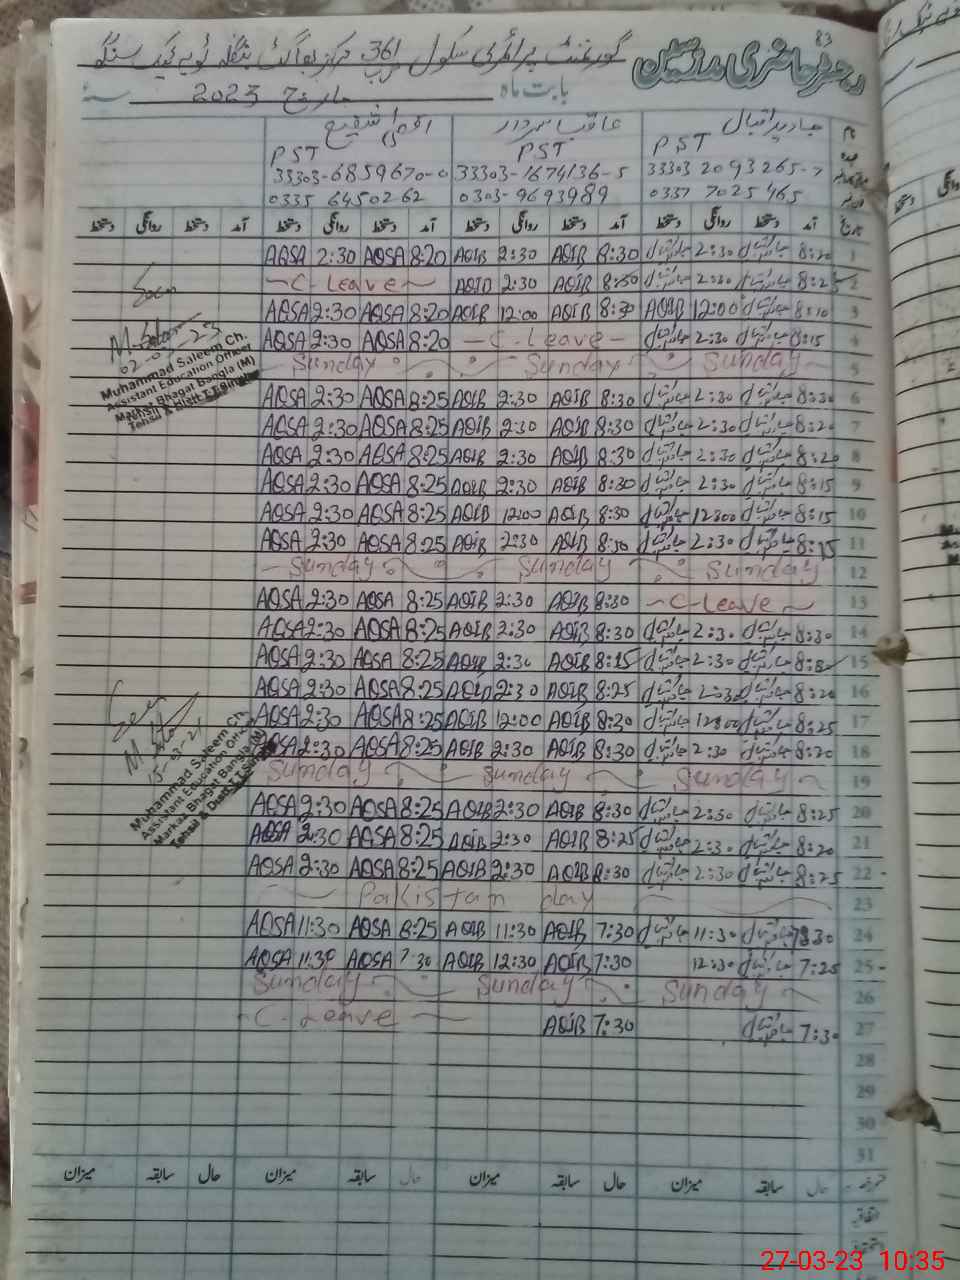 83
رجسٹر حاضری مدرسین
گورنمنٹ پرائمری سکول 361 گ ب مرکز بھاگٹ بنگلہ ٹوبہ ٹیک سنگھ
بابت ماہ مارچ 2023 سنہ
نام جاوید اقبال عاقب سردار اقصیٰ شفیع
PST PST PST
33303 2093265-7 33303-1674136-5 33303-6859670-0
0337 7025465 0303-9693989 0335 6450262
تاریخ آمد دستخط روانگی دستخط آمد دستخط روانگی دستخط آمد دستخط روانگی دستخط آمد دستخط روانگی دستخط
1 8:20 جاوید اقبال 2:30 جاوید اقبال 8:30 AQIB 2:30 AQIB 8:20 AQSA 2:30 AQSA
2 8:25 جاوید اقبال 2:30 جاوید اقبال 8:30 AQIB 2:30 AQIB C-Leave
3 8:10 جاوید اقبال 12:00 AQIB 8:30 AQIB 12:00 AQIB 8:20 AQSA 2:30 AQSA
4 8:15 جاوید اقبال 2:30 جاوید اقبال C-Leave 8:20 AQSA 2:30 AQSA
5 Sunday Sunday Sunday
6 8:30 جاوید اقبال 2:30 جاوید اقبال 8:30 AQIB 2:30 AQIB 8:25 AQSA 2:30 AQSA
7 8:20 جاوید اقبال 2:30 جاوید اقبال 8:30 AQIB 2:30 AQIB 8:25 AQSA 2:30 AQSA
8 8:20 جاوید اقبال 2:30 جاوید اقبال 8:30 AQIB 2:30 AQIB 8:25 AQSA 2:30 AQSA
9 8:15 جاوید اقبال 2:30 جاوید اقبال 8:30 AQIB 2:30 AQIB 8:25 AQSA 2:30 AQSA
10 8:15 جاوید اقبال 12:00 جاوید اقبال 8:30 AQIB 12:00 AQIB 8:25 AQSA 2:30 AQSA
11 8:15 جاوید اقبال 2:30 جاوید اقبال 8:30 AQIB 2:30 AQIB 8:25 AQSA 2:30 AQSA
12 Sunday Sunday Sunday
13 C-Leave 8:30 AQIB 2:30 AQIB 8:25 AQSA 2:30 AQSA
14 8:30 جاوید اقبال 2:30 جاوید اقبال 8:30 AQIB 2:30 AQIB 8:25 AQSA 2:30 AQSA
15 جاوید اقبال 2:30 جاوید اقبال 8:15 AQIB 2:30 AQIB 8:25 AQSA 2:30 AQSA
16 8:20 جاوید اقبال 2:30 جاوید اقبال 8:25 AQIB 2:30 AQIB 8:25 AQSA 2:30 AQSA
17 8:25 جاوید اقبال 12:00 جاوید اقبال 8:30 AQIB 12:00 AQIB 8:25 AQSA 2:30 AQSA
18 8:20 جاوید اقبال 2:30 جاوید اقبال 8:30 AQIB 2:30 AQIB 8:25 AQSA 2:30 AQSA
19 Sunday Sunday Sunday
20 8:25 جاوید اقبال 2:30 جاوید اقبال 8:30 AQIB 2:30 AQIB 8:25 AQSA 2:30 AQSA
21 8:20 جاوید اقبال 2:30 جاوید اقبال 8:25 AQIB 2:30 AQIB 8:25 AQSA 2:30 AQSA
22 8:25 جاوید اقبال 2:30 جاوید اقبال 8:30 AQIB 2:30 AQIB 8:25 AQSA 2:30 AQSA
23 Pakistan day
24 جاوید اقبال 11:30 جاوید اقبال 7:30 AQIB 11:30 AQIB 8:25 AQSA 11:30 AQSA
25 7:25 جاوید اقبال 12:30 7:30 AQIB 12:30 AQIB 7:30 AQSA 11:30 AQSA
26 Sunday Sunday Sunday
27 7:30 جاوید اقبال 7:30 AQIB C-Leave
28
29
30
31
Seen
Muhammad Saleem Ch.
Assistant Education Officer
Markaz Bhagat Bangla (M)
Tehsil & Distt T.T.Singh
Seen
Muhammad Saleem Ch.
Assistant Education Officer
Markaz Bhagat Bangla (M)
Tehsil & Distt T.T.Singh
حال سابقہ میزان حال سابقہ میزان حال سابقہ میزان حال سابقہ میزان
27-03-23 10:35